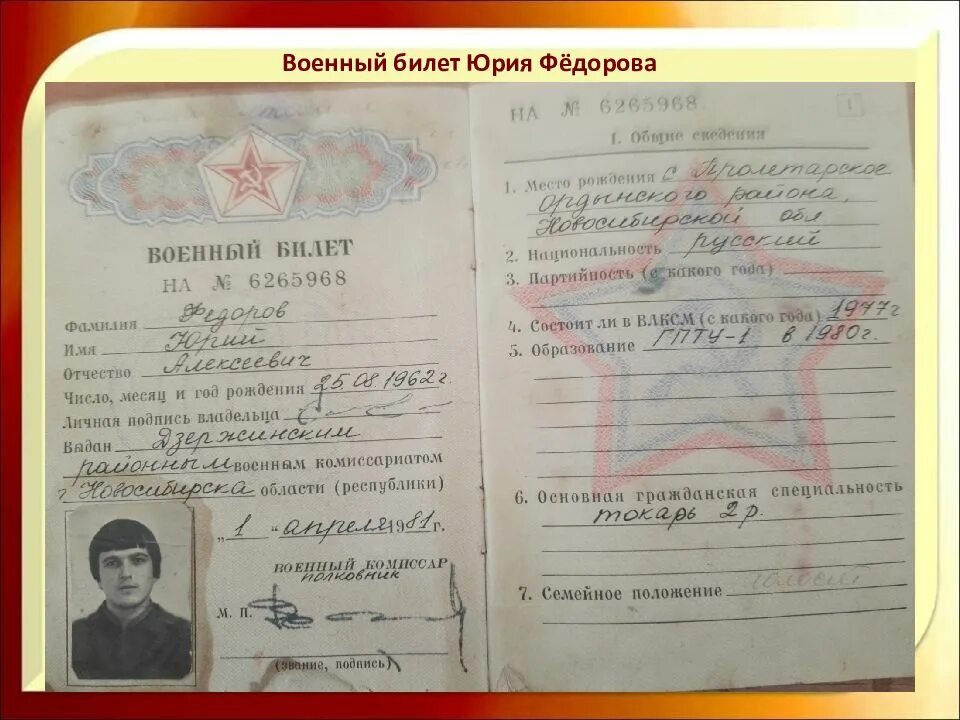 Военный билет Юрия Фёдорова
ВОЕННЫЙ БИЛЕТ
НА № 6265968
Фамилия Федоров
Имя Юрий
Отчество Алексеевич
Число, месяц и год рождения 25.08.1962г.
Личная подпись владельца
Выдан Дзержинским
районным военным комиссариатом
г. Новосибирска области (республики)
„1" апреля 1981 г.
ВОЕННЫЙ КОМИССАР
полковник
М. П.
(звание, подпись)
НА № 6265968
1
I. Общие сведения
1. Место рождения с Пролетарское
Ордынского района,
Новосибирской обл
2. Национальность русский
3. Партийность (с какого года)
4. Состоит ли в ВЛКСМ (с какого года) 1977г
5. Образование ГПТУ-1 в 1980г.
6. Основная гражданская специальность
токарь 2 р.
7. Семейное положение холостой